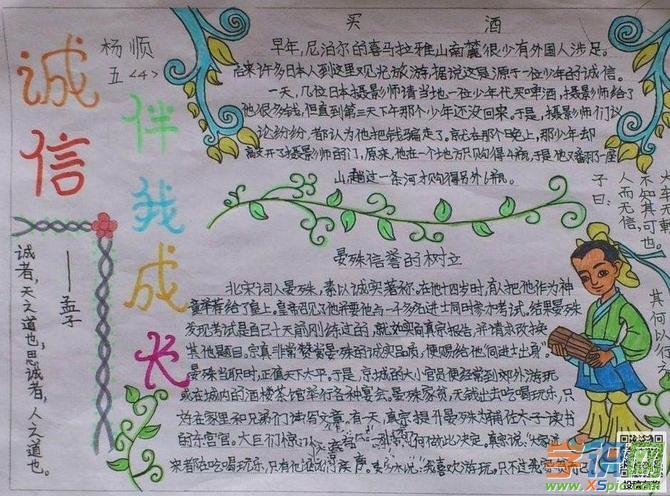 诚信
伴我成长
杨顺
五<4>
买酒
早年,尼泊尔的喜马拉雅山南麓很少有外国人涉足。
后来许多日本人到这里观光旅游,据说这是源于一位少年的诚信。
一天,几位日本摄影师请当地一位少年代买啤酒,摄影师给了
他很多钱,但直到第三天下午那个少年还没回来。于是,摄影师们议
论纷纷,都认为他把钱骗走了。就在那个晚上,那少年却
敲开了摄影师的门,原来,他在一个地方只购得4瓶,于是他又翻了一座
山,趟过一条河才购得另外6瓶。
子曰:
人而无信,
不知其可也。
其何以行之
诚者,天之道也;思诚者,人之道也。
——孟子
晏殊信誉的树立
北宋词人晏殊,素以诚实著称。在他十四岁时,有人把他作为神
童举荐给了皇上。皇帝召见了他并要他与一千多名进士同时参加考试。结果晏殊
发现考试是自己十天前刚练过的,就如实向真宗报告,并请求改换
其他题目。宋真宗非常赞赏晏殊的诚实品质,便赐给他"同进士出身"。
晏殊当职时,正值天下太平。于是,京城的大小官员便经常到郊外游玩
或在城内的酒楼茶馆举行各种宴会。晏殊家贫,无钱出去吃喝玩乐,只
好在家里和兄弟们读写文章。有一天,真宗提升晏殊为辅佐太子读书
的东宫官。大臣们惊讶
何做此决定。真宗说:
吃喝玩乐,只有他
我喜欢游玩,只不过我家贫
学识网
www.XSpic
投稿有奖